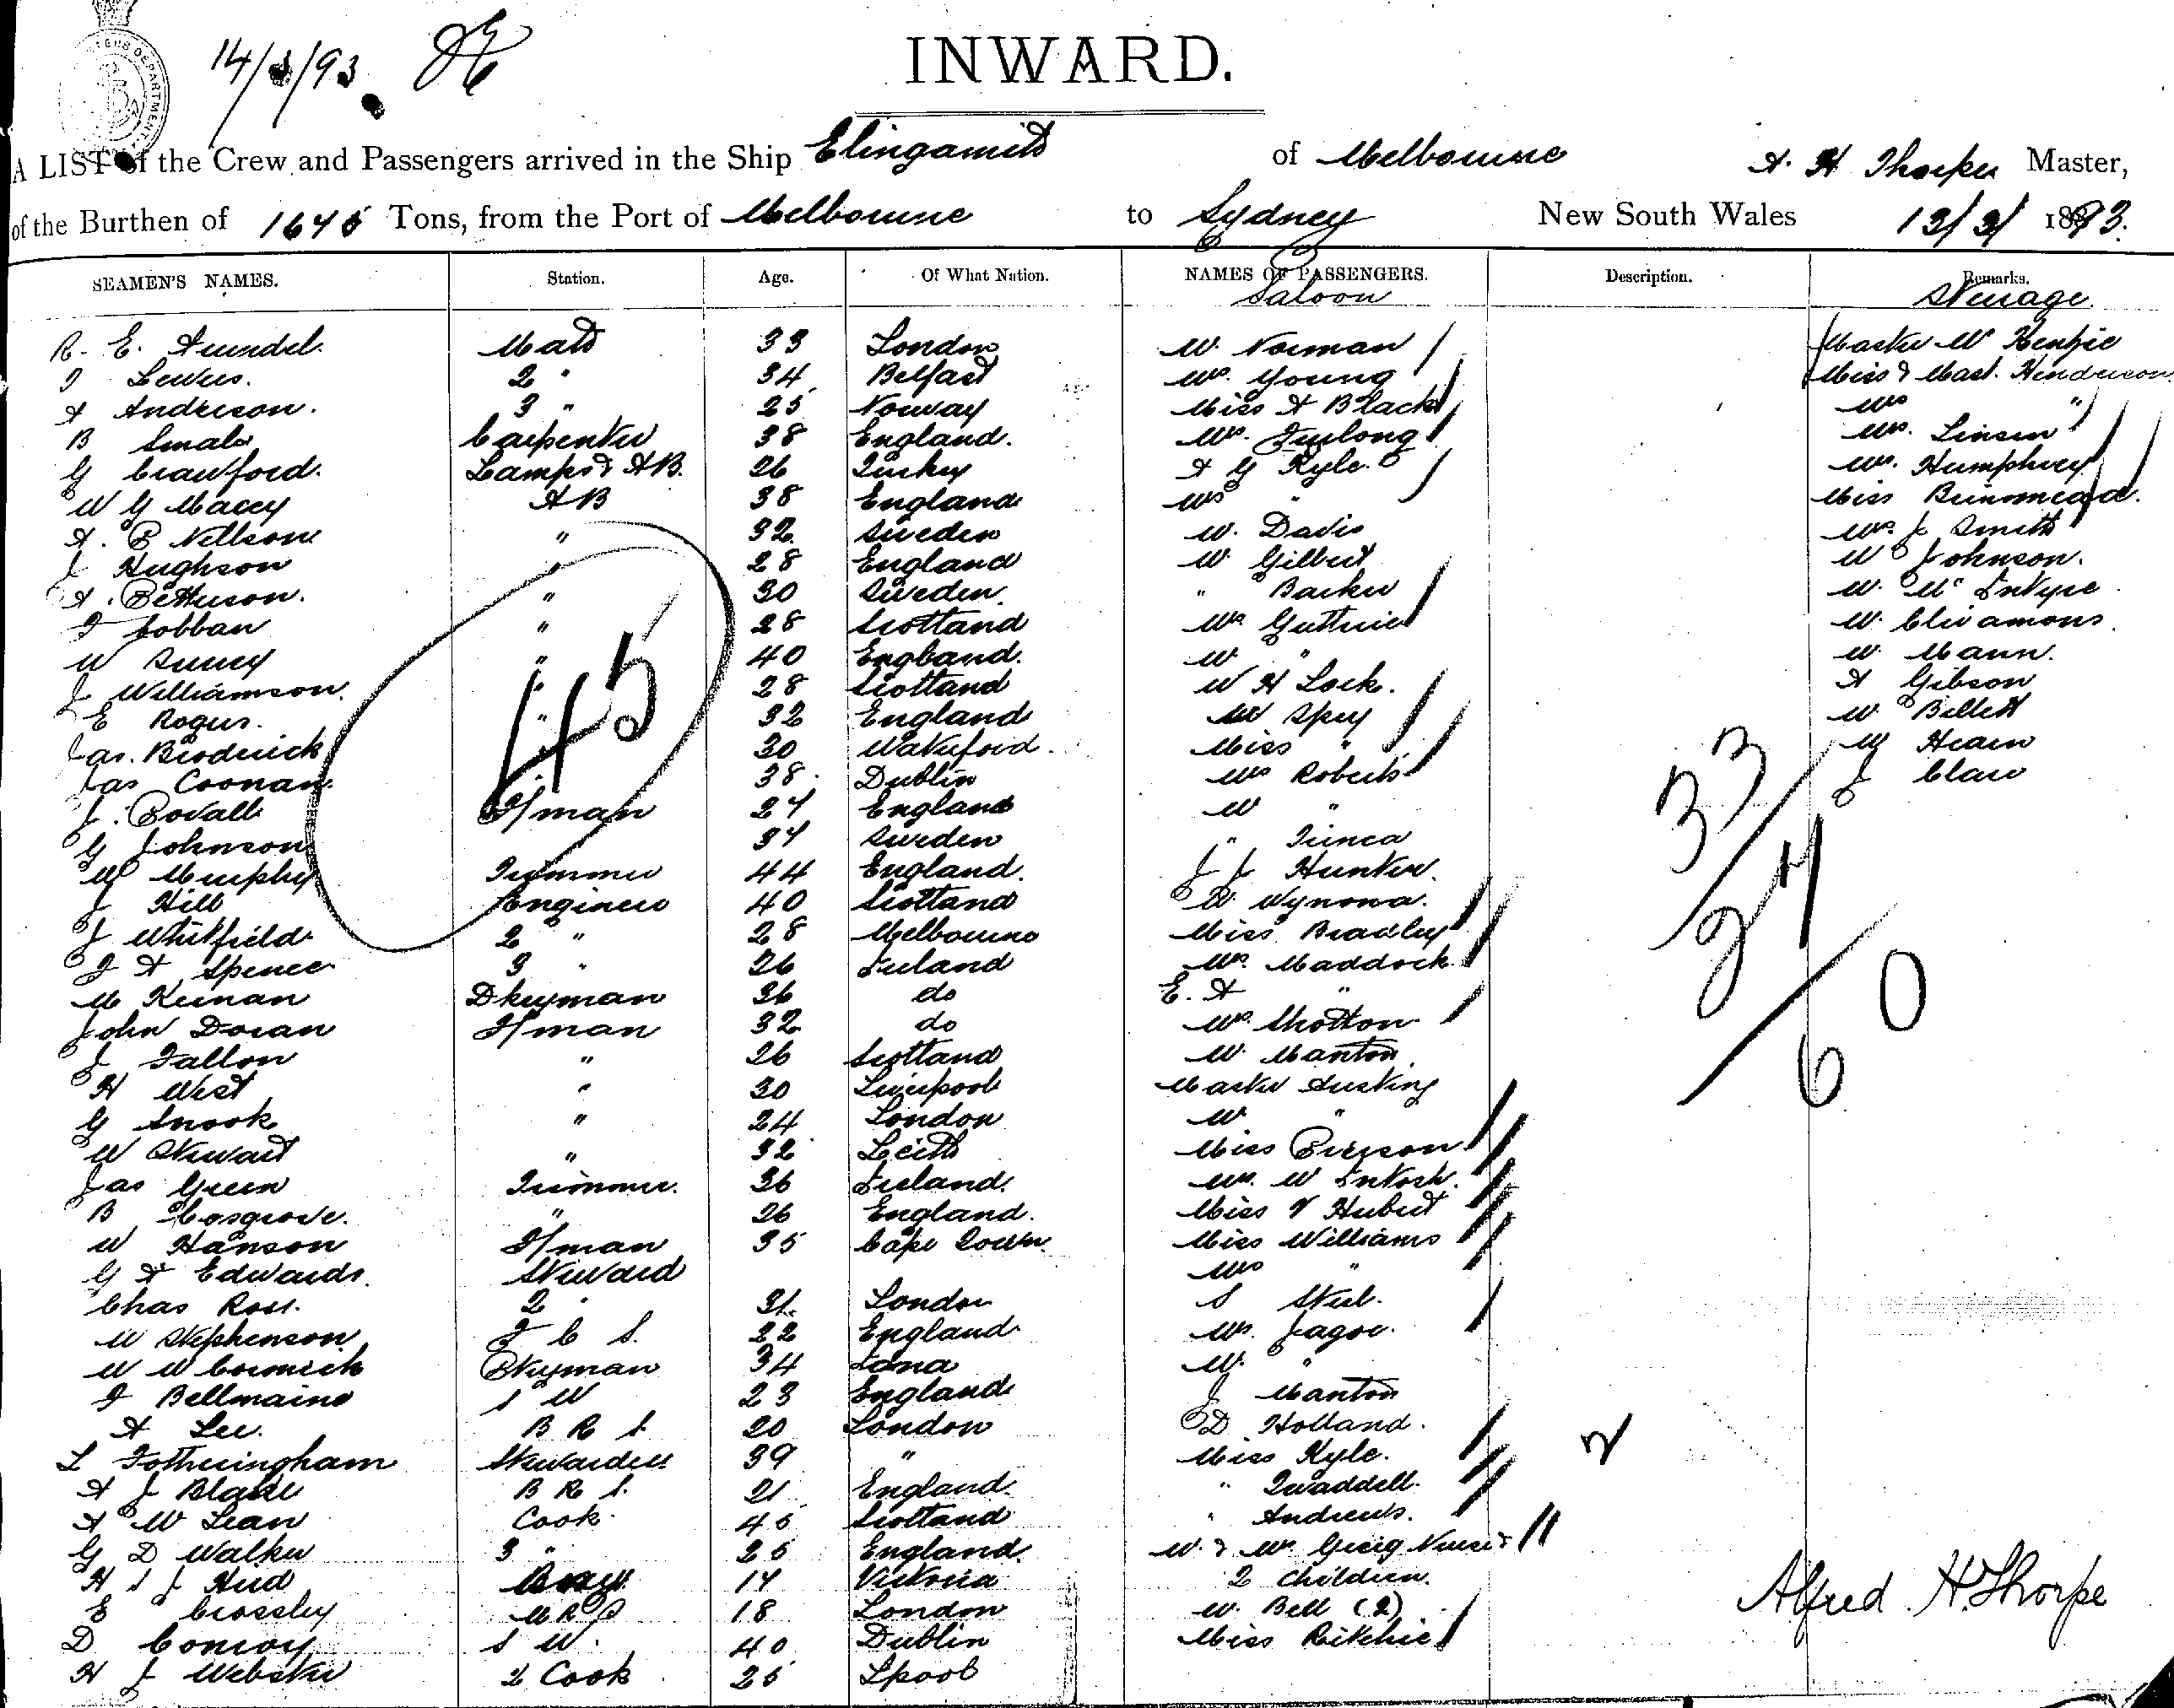 14/3/93.
INWARD.
A LIST of the Crew and Passengers arrived in the Ship Elingamite of Melbourne A. H Thorpe Master,
of the Burthen of 1675 Tons, from the Port of Melbourne to Sydney New South Wales 13/3/ 1893.
SEAMEN'S NAMES. Station. Age. Of What Nation. NAMES OF PASSENGERS. Description. Remarks.
Saloon Steerage
R. E. Arundel. Mate 33 London W. Norman Master Mc Kenzie
Lewers. 2 " 34 Belfast Mrs. Young Miss & Mast. Henderson
A Anderson. 3 " 25 Norway Miss A Black Mrs "
B Smale Carpenter 38 England. Mrs. Furlong Mrs. Linsen
G Crawford. Lamps & AB. 26 Turkey A G Kyle. Mrs. Humphrey
W G Macey AB 38 England Mrs " Miss
A. P Nellson " 32 Sweden W. Davis Mrs. J Smith
J Hughson " 28 England W Gilbert W Johnson.
A. Petterson. " 30 Sweden. " Barker W. McIntyre
Cobban " 28 Scotland Mrs Guthrie W.
W " 40 England. W " W Mann.
J Williamson. " 28 Scotland W H Lock. A Gibson
E Rogers. " 32 England Mr Spry W Billett
Jas. Broderick " 30 Waterford. Miss " W Hearn
Jas Coonan " 38. Dublin Mrs Roberts J Claw
J. Bovall F/man 27 England W "
G Johnson 37 Sweden "
W Murphy Trimmer 44 England. J J Hunter.
J Hill Engineer 40 Scotland W. Wynona.
J Whitfield 2 " 28 Melbourne Miss Bradley
J A Spence 3 " 26 Ireland Mrs. Maddock
M Keenan Dkeyman 36 do E. A "
John Doran F/man 32 do Mrs. Shotton
J Fallon " 26 Scotland W. Manton
H West " 30 Liverpool Master Susking
G Snook " 24 London W "
W Stewart " 32 Leith Miss Pierson
Jas Green Trimmer. 36 Ireland. Mrs. McIntosh.
B Cosgrove. " 26 England. Miss V Hubert
W Hanson F/man 35 Cape Town. Miss Williams
G A Edwards. Steward Mrs "
Chas Ross. 2 " London S Steel.
W Stephenson F C S. 22 England Mrs. Jagoe.
W McCormick 34 W. "
F Bellmaine S W 23 England J Manton
A Lee. B R S. 20 London D Holland.
L Fotheringham Stewardess 39 " Miss Kyle.
A J Blake B R S. 21 England. " Twaddell.
A McLean Cook 45 Scotland " Andrews.
G D Walker 3 " 25 England W. & Mrs. Greig Nurse &
H J J Hurd Boy 17 Victoria 2 Children.
E Crossley 18 London W. Bell (2)
D Conroy S W. 40 Dublin Miss Ritchie
H J Webster 2 Cook 25 Lpool
45
33
27
60
2
Alfred. H. Thorpe